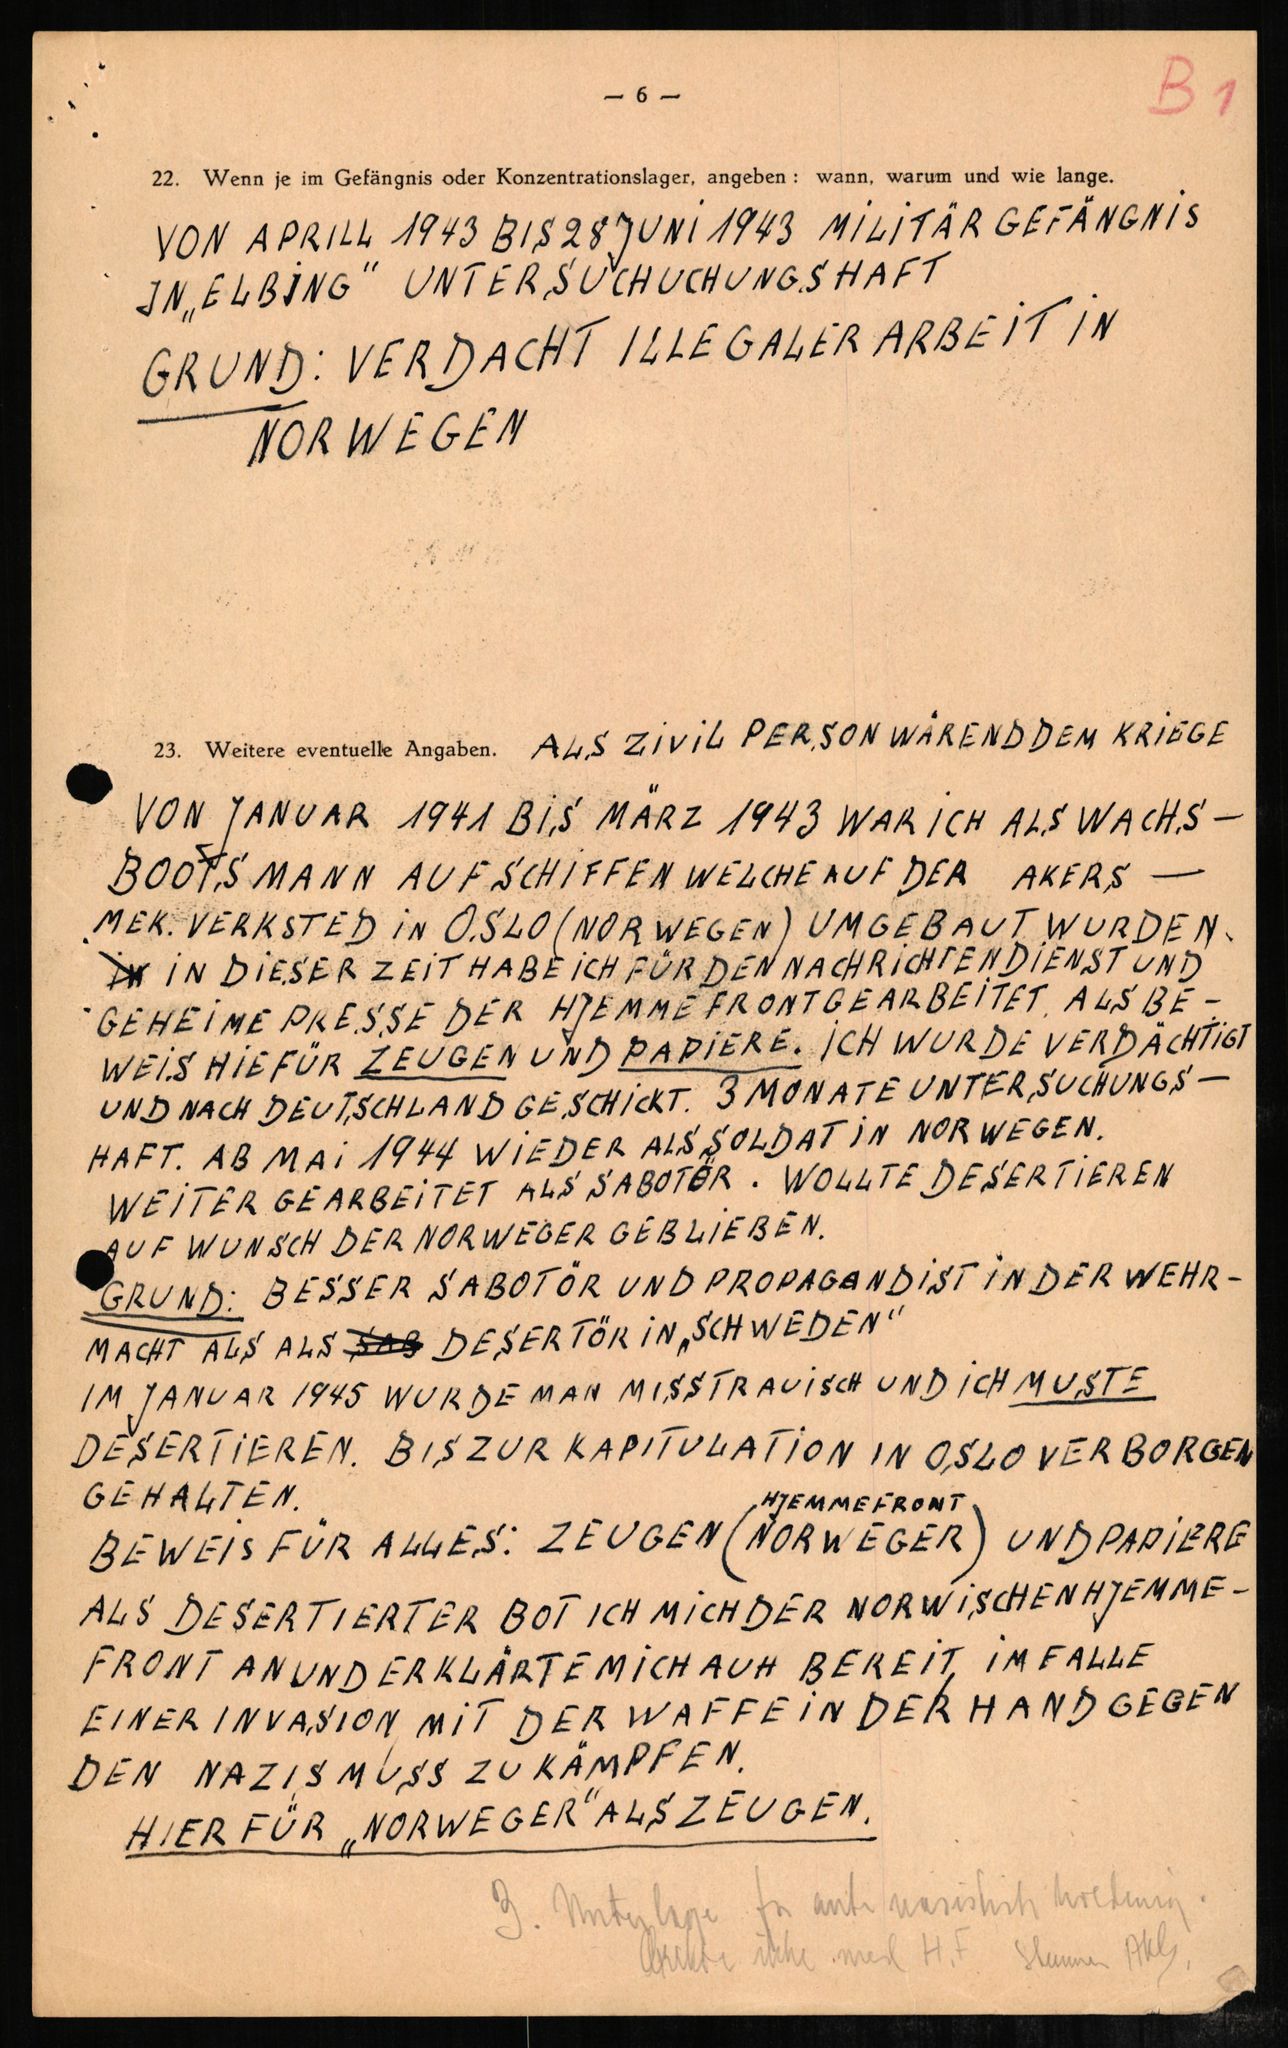 — 6 —
B 1
22. Wenn je im Gefängnis oder Konzentrationslager, angeben: wann, warum und wie lange.
VON APRILL 1943 BIS 28 JUNI 1943 MILITÄRGEFÄNGNIS
IN „ELBING“ UNTERSUCHUCHUNGSHAFT
GRUND: VERDACHT ILLEGALER ARBEIT IN
NORWEGEN
23. Weitere eventuelle Angaben. ALS ZIVIL PERSON WÄREND DEM KRIEGE
VON JANUAR 1941 BIS MÄRZ 1943 WAR ICH ALS WACHS-
BOOTSMANN AUF SCHIFFEN WELCHE AUF DER AKERS —
MEK. VERKSTED IN OSLO (NORWEGEN) UMGEBAUT WURDEN.
in IN DIESER ZEIT HABE ICH FÜR DEN NACHRICHTENDIENST UND
GEHEIME PRESSE DER HJEMMEFRONT GEARBEITET. ALS BE-
WEIS HIEFÜR ZEUGEN UND PAPIERE. ICH WURDE VERDÄCHTIGT
UND NACH DEUTSCHLAND GESCHICKT. 3 MONATE UNTERSUCHUNGS-
HAFT. AB MAI 1944 WIEDER ALS SOLDAT IN NORWEGEN.
WEITER GEARBEITET ALS SABOTÖR. WOLLTE DESERTIEREN
AUF WUNSCH DER NORWEGER GEBLIEBEN.
GRUND: BESSER SABOTÖR UND PROPAGANDIST IN DER WEHR-
MACHT ALS ALS SAB DESERTÖR IN „SCHWEDEN“
IM JANUAR 1945 WURDE MAN MISSTRAUISCH UND ICH MUSTE
DESERTIEREN. BIS ZUR KAPITULATION IN OSLO VERBORGEN
GEHALTEN.
HJEMMEFRONT
BEWEIS FÜR ALLES: ZEUGEN (NORWEGER) UND PAPIERE
ALS DESERTIERTER BOT ICH MICH DER NORWISCHEN HJEMME-
FRONT AN UND ERKLÄRTE MICH AUH BEREIT, IM FALLE
EINER INVASION, MIT DER WAFFE IN DER HAND GEGEN
DEN NAZISMUSS ZU KÄMPFEN.
HIERFÜR „NORWEGER“ ALS ZEUGEN.
3. for anti
med H.F.